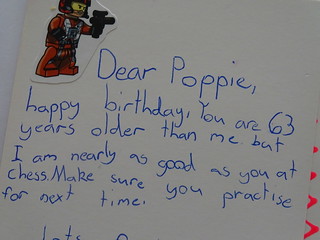 Dear Poppie,
happy birthday. You are 63
years older than me but
I am nearly as good as you at
chess. Make sure you practise
for next time.